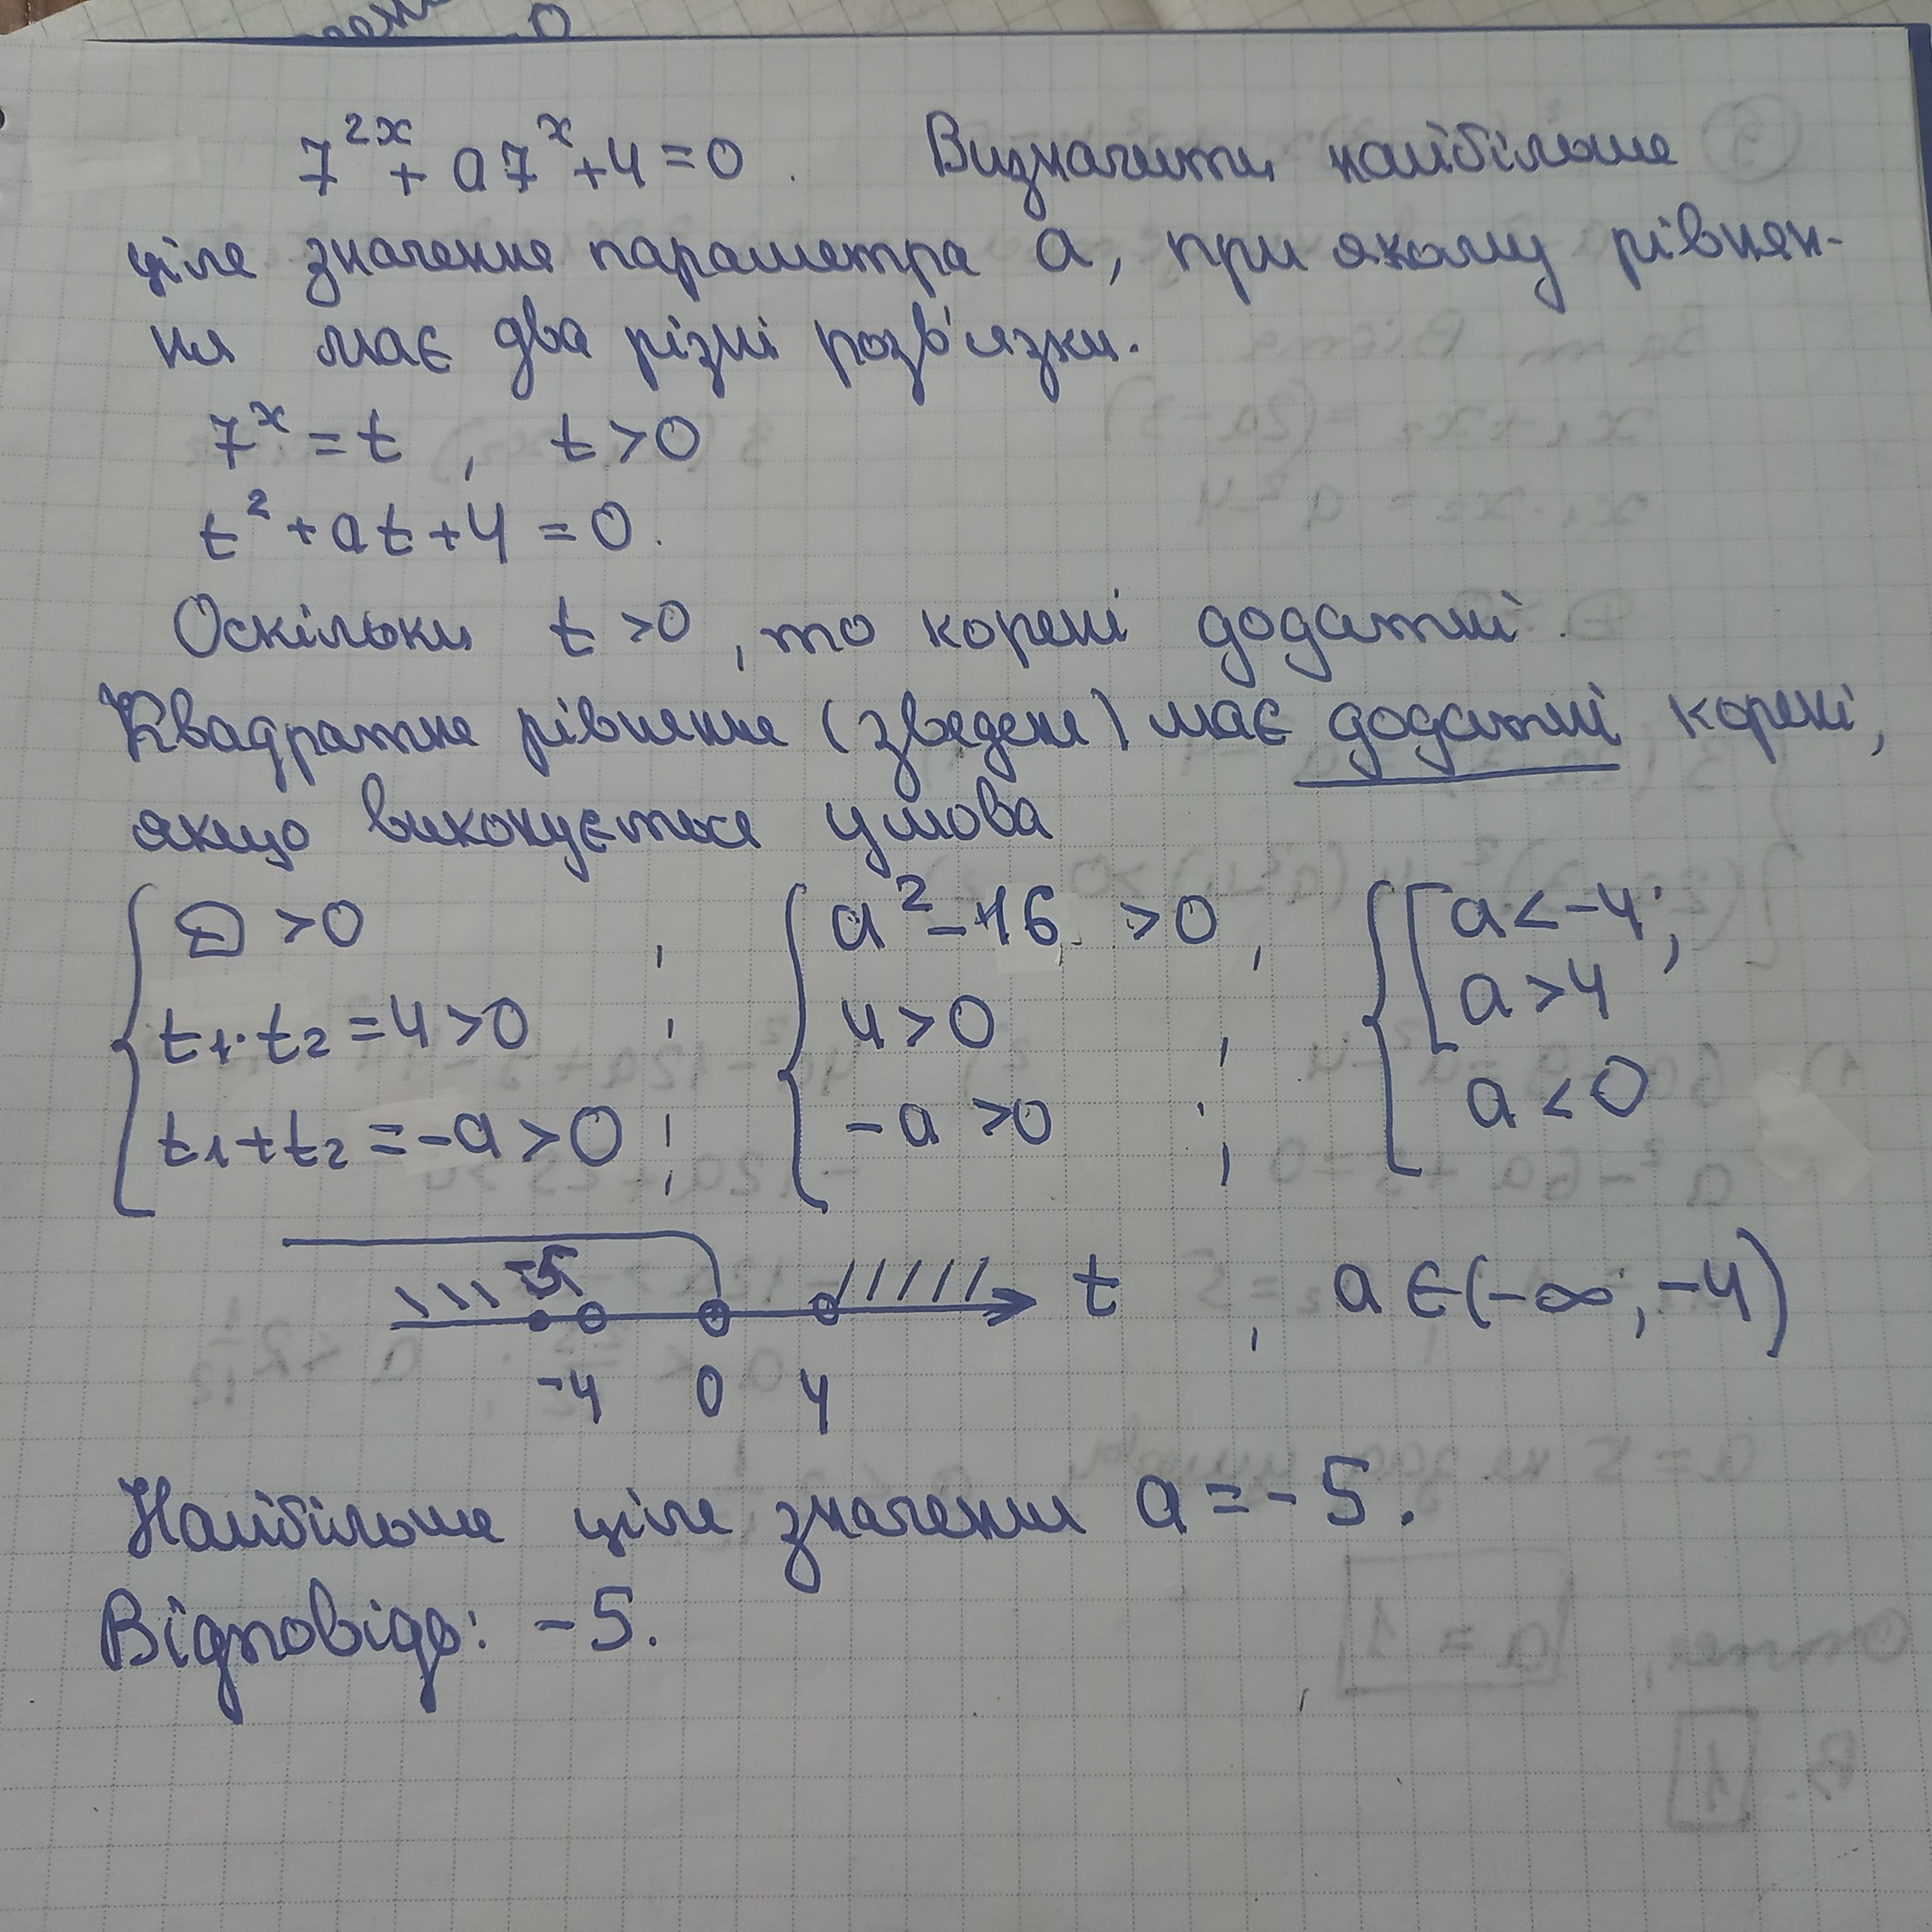 7^{2x} + a7^x + 4 = 0. Визначити найбільше
ціле значення параметра a, при якому рівнян-
ня має два різні розв'язки.
7^x = t, t > 0
t^2 + at + 4 = 0.
Оскільки t > 0, то корені додатні.
Квадратне рівняння (зведене) має додатні корені,
якщо виконується умова
{ D > 0 ; { a^2 - 16 > 0, { [ a < -4;
t1·t2 = 4 > 0 ; 4 > 0 ; a > 4
t1 + t2 = -a > 0 ; -a > 0 ; a < 0
-5
t, a ∈ (-∞; -4)
-4 0 4
Найбільше ціле значення a = -5.
Відповідь: -5.